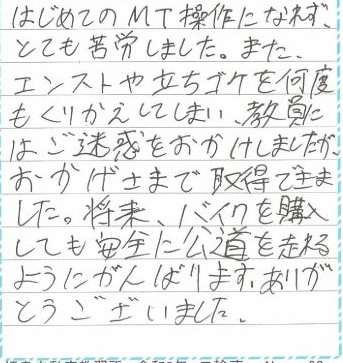 はじめてのMT操作になれず、
とても苦労しました。また、
エンストや立ちゴケを何度
もくりかえしてしまい、教員に
はご迷惑をおかけしましたが、
おかげさまで取得できま
した。将来、バイクを購入
しても安全に公道を走れる
ようにがんばります。ありが
とうございました。